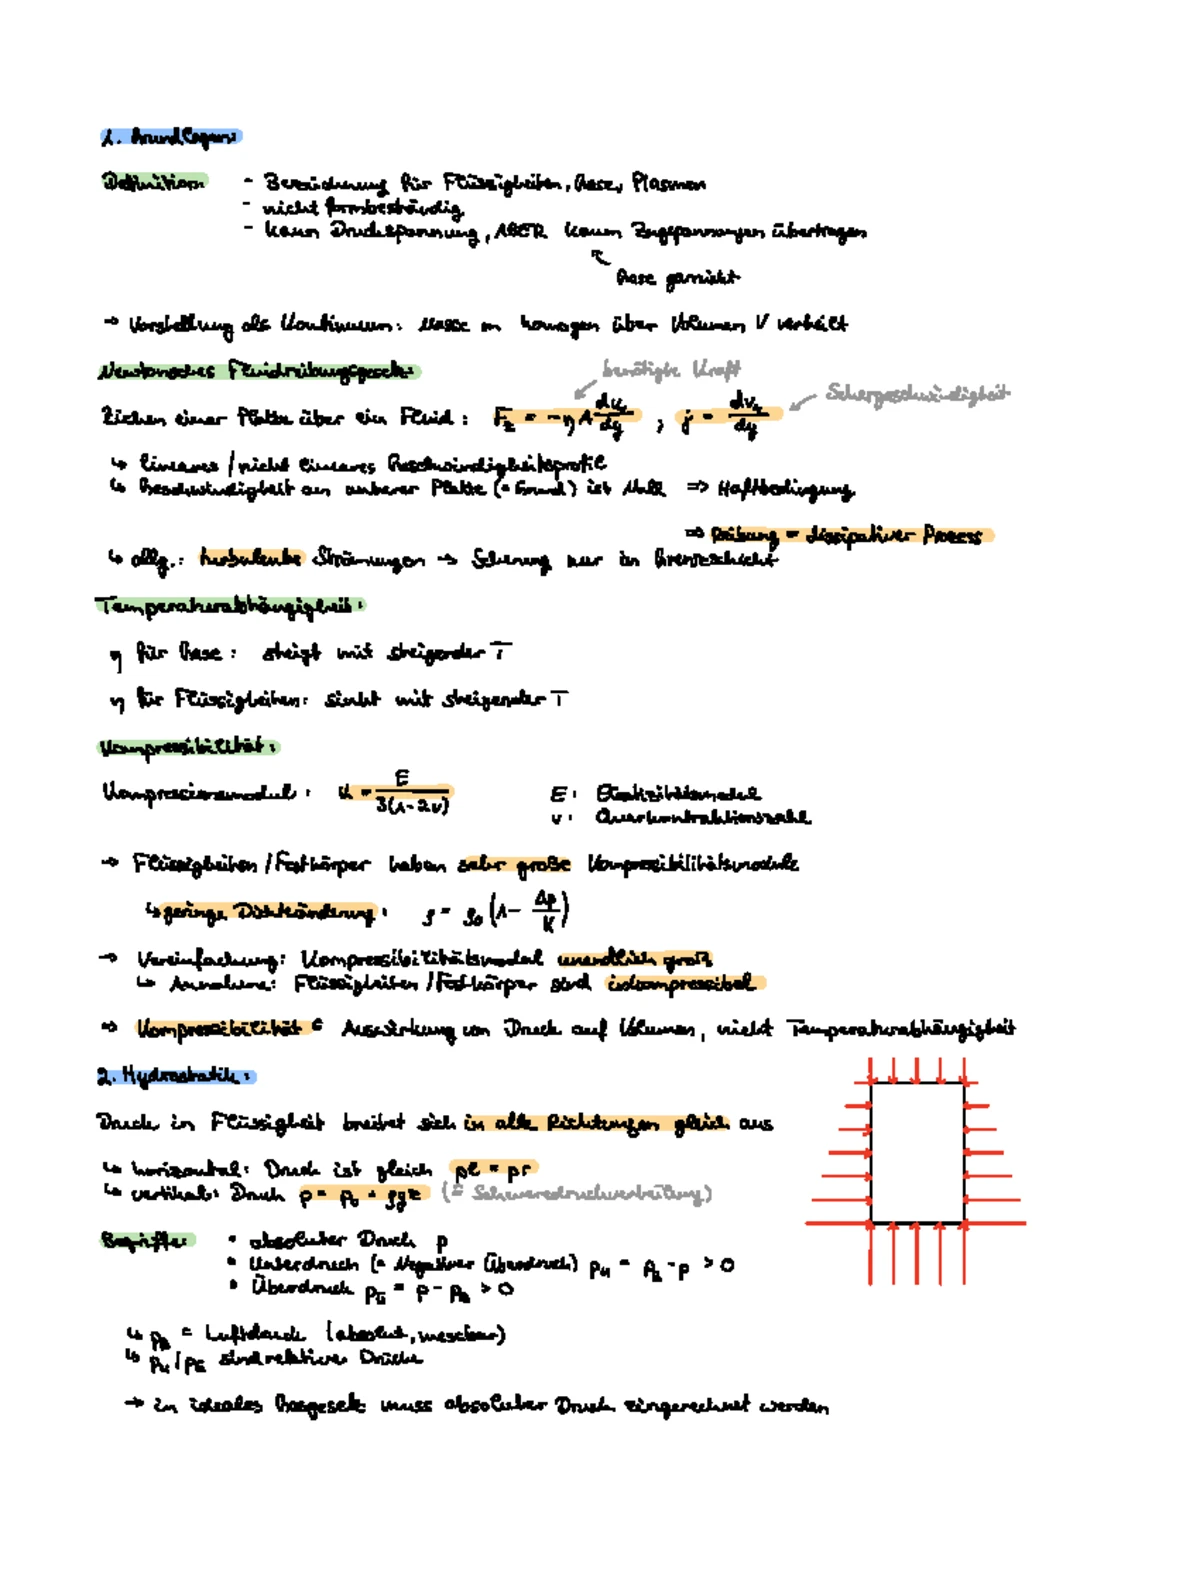 1. Grundlagen:
Definition - Bezeichnung für Flüssigkeiten, Gase, Plasmen
- nicht formbeständig
- kann Druckspannung, ABER kaum Zugspannungen übertragen
Gase garnicht
→ Vorstellung als Kontinuum: Masse m homogen über Volumen V verteilt
Newtonsches Fluidreibungsgesetz:
benötigte Kraft
Schergeschwindigkeit
Ziehen einer Platte über ein Fluid: Fx = -η A dvx/dy ; j = dvx/dy
↳ lineares / nicht lineares Geschwindigkeitsprofil
↳ Geschwindigkeit an unterer Platte (= Grund) ist Null => Haftbedingung
=> Reibung = dissipativer Prozess
↳ allg.: turbulente Strömungen → Scherung nur in Grenzschicht
Temperaturabhängigkeit:
η für Gase: steigt mit steigender T
η für Flüssigkeiten: sinkt mit steigender T
Kompressibilität:
Kompressionsmodul: K = E/3(1-2ν) E: Elastizitätsmodul
ν: Querkontraktionszahl
→ Flüssigkeiten / Festkörper haben sehr große Kompressibilitätsmodule
↳ geringe Dichteänderung: ρ = ρ0 (1- Δp/K)
→ Vereinfachung: Kompressibilitätsmodul unendlich groß
↳ Annahme: Flüssigkeiten / Festkörper sind inkompressibel
=> Kompressibilität = Auswirkung von Druck auf Volumen, nicht Temperaturabhängigkeit
2. Hydrostatik:
Druck in Flüssigkeit breitet sich in alle Richtungen gleich aus
↳ horizontal: Druck ist gleich pl = pr
↳ vertikal: Druck p = p0 + ρgz (= Schweredruckverteilung)
Begriffe: • absoluter Druck p
• Unterdruck (= Negativer Überdruck) pU = pL - p > 0
• Überdruck pÜ = p - pL > 0
↳ pL = Luftdruck (absolut, messbar)
↳ pU / pÜ sind relative Drücke
→ in ideales Gasgesetz muss absoluter Druck eingerechnet werden